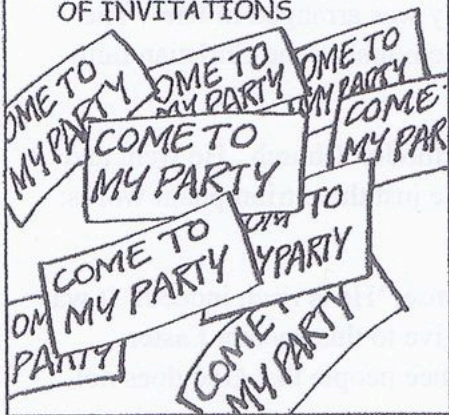 OF INVITATIONS
OME TO
MY PARTY
OME TO
MY PARTY
OME TO
PARTY
COME
MY PAR
COME TO
MY PARTY
TO
YPARTY
COME TO
MY PARTY
OM
PARTY
COME
MY PARTY